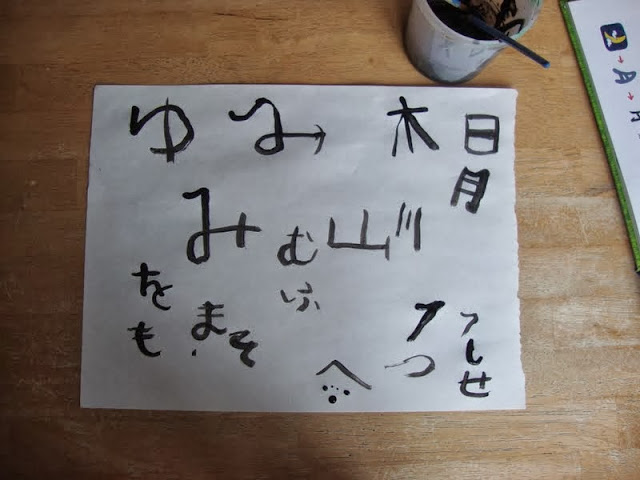 ゆ み 木 日
月
み む 山 川
を ふ
も ま そ つ し
へ せ
A